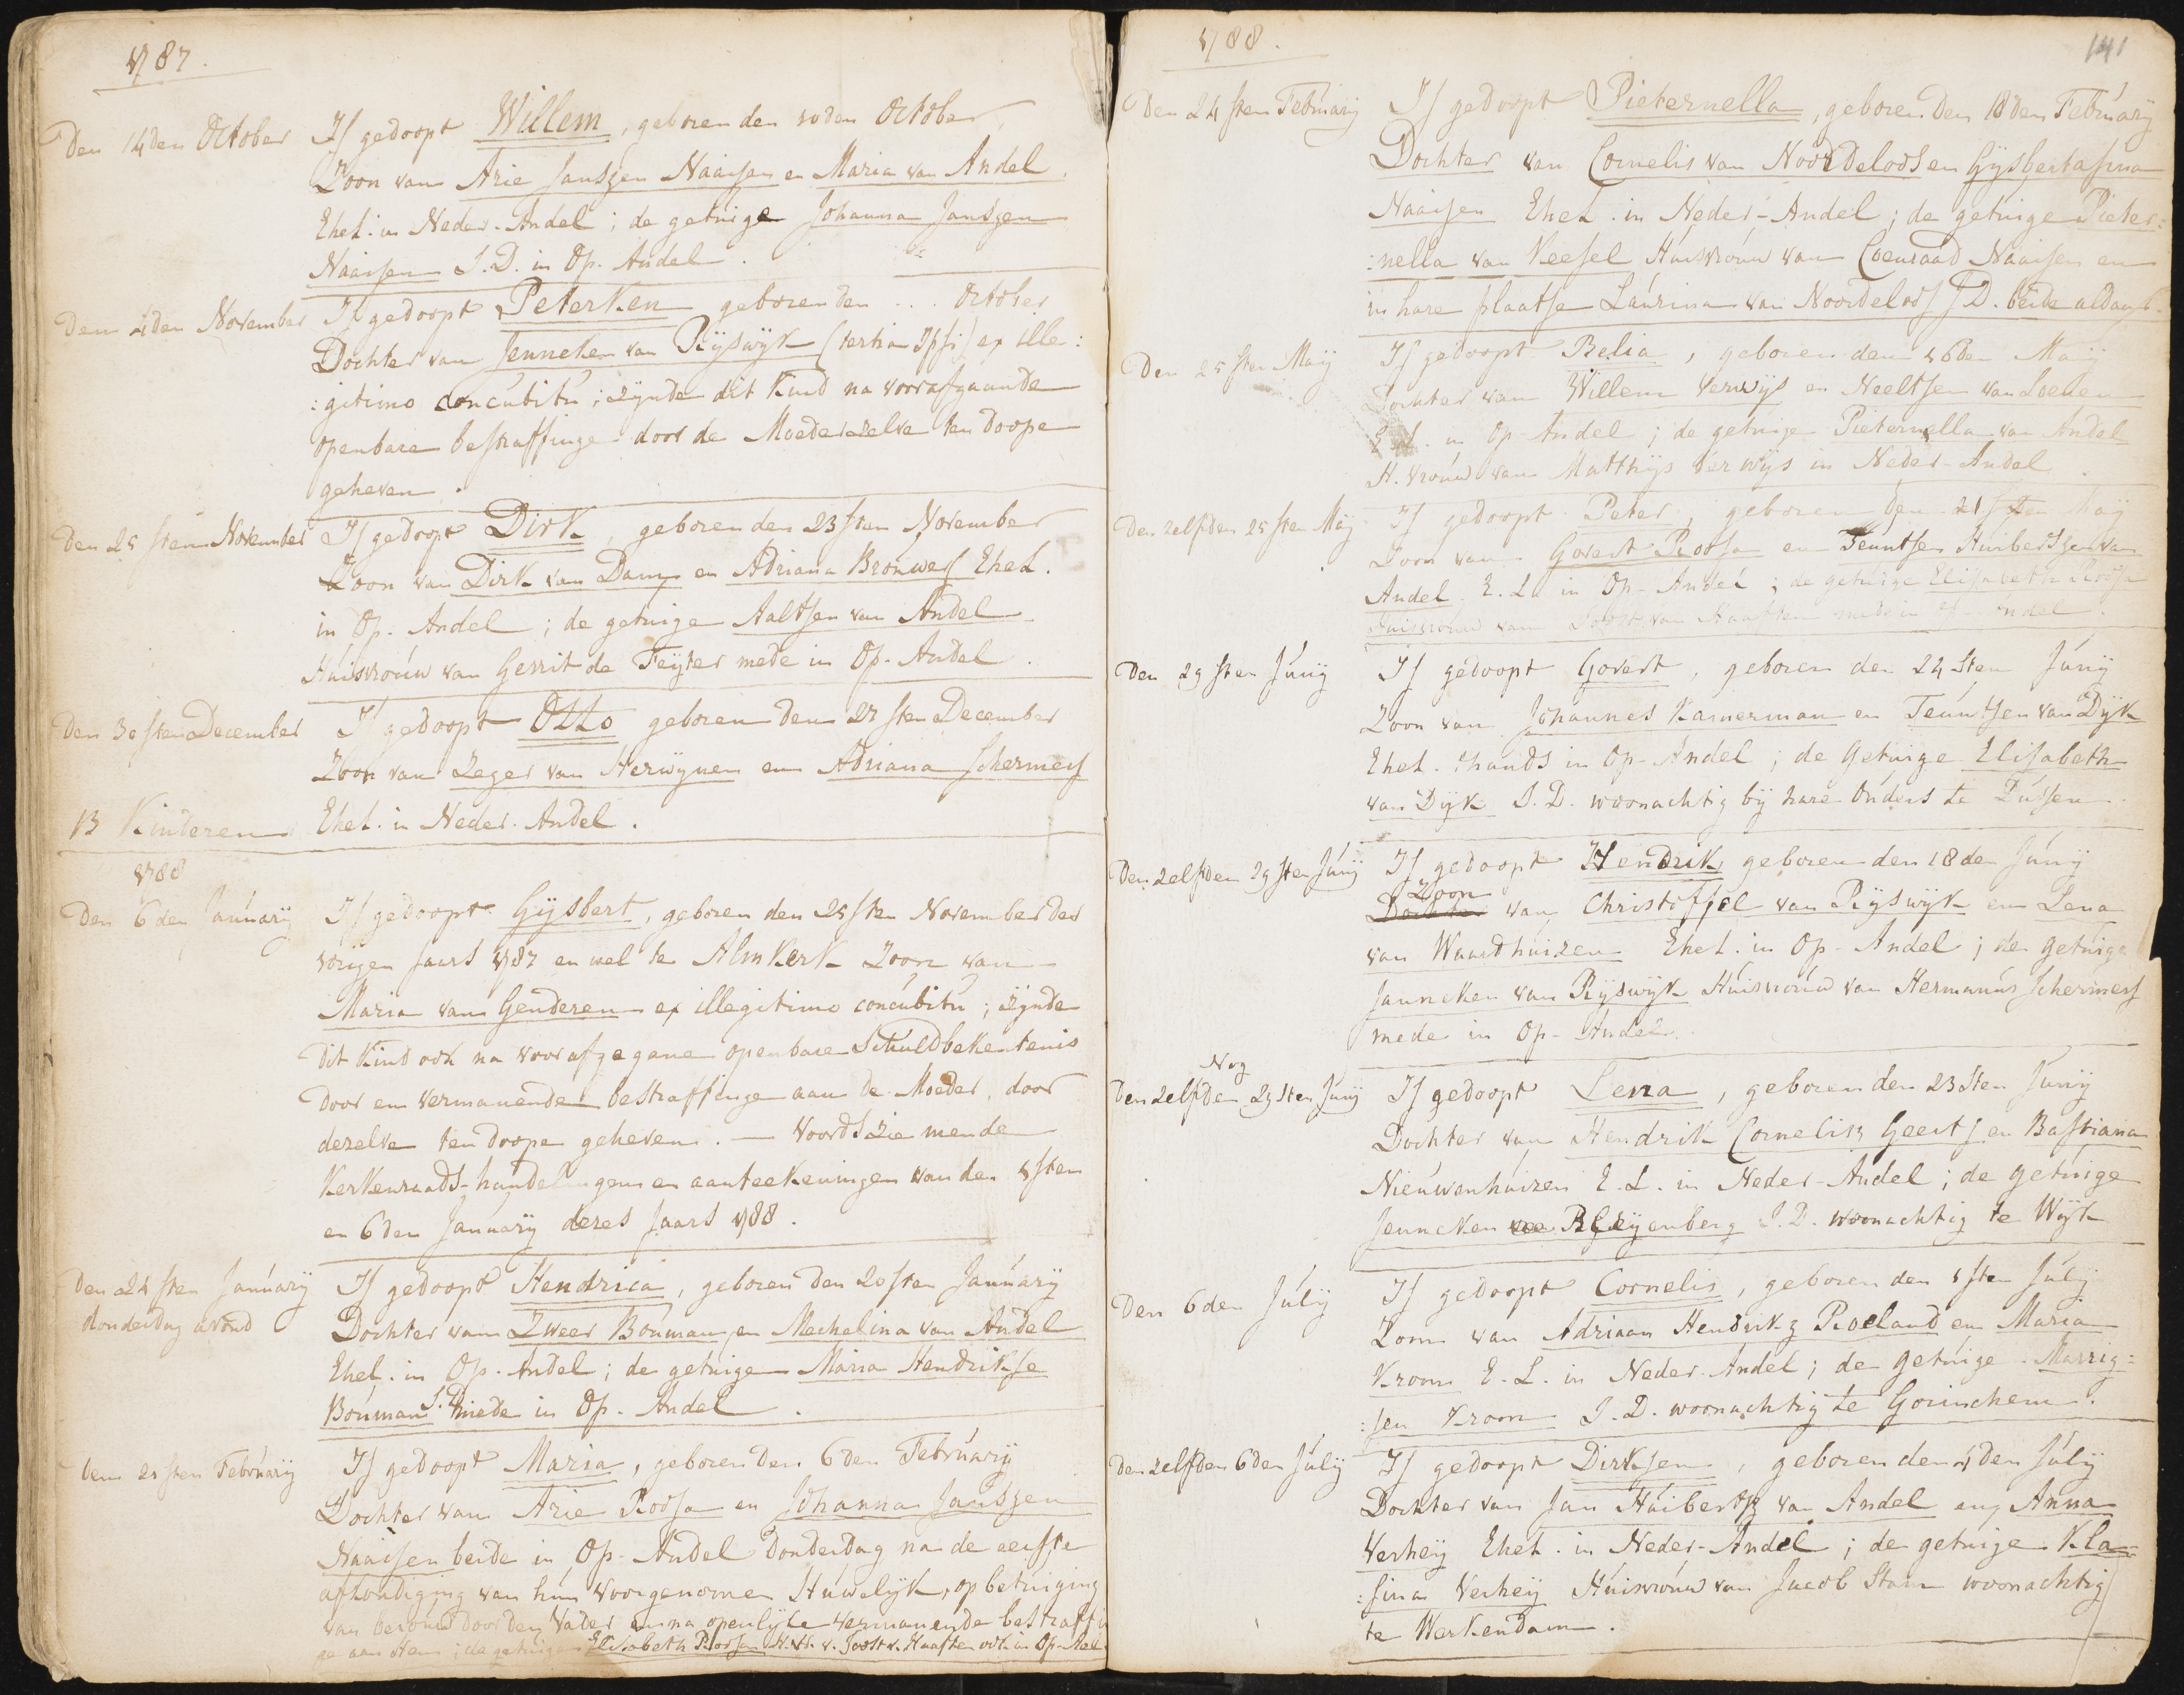 1787.
Den 14den October Is gedoopt Willem, geboren den 10den October
Zoon van Arie Janszen Naaijen en Maria van Andel
Ehel. in Neder-Andel; de getuige Johanna Janszen
Naaijen J.D. in Op-Andel.
Den 4den November Is gedoopt Peterken geboren den ... October
Dochter van Jenneken van Rijswijk (tertia Ipsi) ex ille:
:gitimo concubitu; zijnde dit Kind na voorafgaande
openbare bestraffinge door de Moeder zelve ten doope
geheven.
Den 25sten November Is gedoopt Dirk, geboren den 23sten November
Zoon van Dirk van Dam en Adriana Brouwer Ehel.
in Op-Andel; de getuige Aaltjen van Andel
Huisvrouw van Gerrit de Feijter mede in Op-Andel.
Den 30sten December Is gedoopt Otto geboren den 27sten December
Zoon van Zeger van Herwijnen en Adriana Schermers
13 Kinderen Ehel. in Neder-Andel.
1788
Den 6den January Is gedoopt Gijsbert, geboren den 25sten November des
vorigen jaars 1787 en wel te Almkerk Zoon van
Maria van Genderen ex illegitimo concubitu; zijnde
dit Kind ook na voorafgegane openbare Schuldbekentenis
door een vermanende bestraffinge aan de Moeder, door
dezelve ten doope geheven. — Voords zie men de
Kerkenraads-handelingen en aanteekeningen van den 1sten
en 6den January dezes jaars 1788.
Den 24sten January Is gedoopt Hendrica, geboren den 20sten January
donderdag avond Dochter van Zweer Bouman en Mechelina van Andel
Ehel. in Op-Andel; de getuige Maria Hendrikse
Bouman J.D. mede in Op-Andel.
Den 21sten February Is gedoopt Maria, geboren den 6den February
Dochter van Arie Roosa en Johanna Janszen
Naaijen beide in Op-Andel Donderdag na de eerste
afkondiging van hun voorgenomen Huwelijk, op betuiging
van berouw door den Vader en na openlijke vermanende bestraffin
ge aan Hem; de getuige Elisabeth Roosa H.V. v. Joost v. Haaften ook in Op-Andel
1788.
141
Den 24sten February Is gedoopt Pieternella, geboren den 18den February
Dochter van Cornelis van Noordeloos en Gijsbertajina
Naaijen Ehel. in Neder-Andel; de getuige Pieter:
:nella van Veesel Huisvrouw van Coenraad Naaijen en
in hare plaatse Laurina van Noordeloos J.D. beide aldaar.
Den 25sten Maij Is gedoopt Belia, geboren den 16den Maij
Dochter van Willem Verwijs en Neeltjen van Loenen
E.L. in Op-Andel; de getuige Pieternella van Andel
H.vrouw van Matthijs Verwijs in Neder-Andel.
Den zelfden 25sten Maij Is gedoopt Peter, geboren den 21sten Maij
Zoon van Govert Roosa en Teuntjen Huibertszen van
Andel E.L. in Op-Andel; de getuige Elisabeth Roosa
Huisvrouw van Joost van Haaften mede in Op-Andel.
Den 29sten Junij Is gedoopt Govert, geboren den 24sten Junij
Zoon van Johannes Kamerman en Teuntjen van Dijk
Ehel. thands in Op-Andel; de Getuige Elisabeth
van Dijk J.D. woonachtig bij hare Ouders te Dussen.
Den zelfden 29sten Junij Is gedoopt Hendrik geboren den 18den Junij
Zoon
Dochter van Christoffel van Rijswijk en Lena
van Waardhuizen Ehel. in Op-Andel; de getuige
Janneken van Rijswijk Huisvrouw van Hermanus Schermers
mede in Op-Andel.
Nog
Den zelfden 29sten Junij Is gedoopt Lena, geboren den 23sten Junij
Dochter van Hendrik Cornelisz Geerts en Bastiana
Nieuwenhuizen E.L. in Neder-Andel; de getuige
Jenneken Bleijenberg J.D. woonachtig te Wijk
Den 6den Julij Is gedoopt Cornelis, geboren den 1sten Julij
Zoon van Adriaan Hendrikz Roeland en Maria
Kroon E.L. in Neder-Andel; de getuige Marrig:
:jen Kroon J.D. woonachtig te Gorinchem.
Den zelfden 6den Julij Is gedoopt Dirksen, geboren den 4den Julij
Dochter van Jan Huibertsz van Andel en Anna
Verheij Ehel. in Neder-Andel; de getuige Kla:
:sina Verheij Huisvrouw van Jacob Stam woonachtig
te Werkendam.